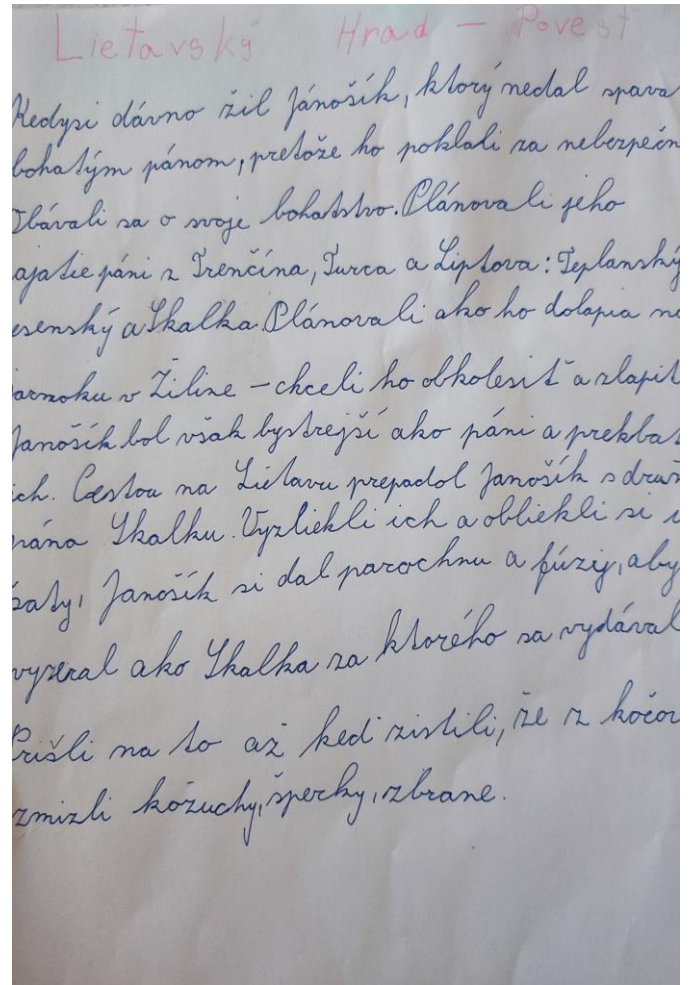 Lietavský Hrad - Povesť
Kedysi dávno žil Jánošík, ktorý nedal spava
bohatým pánom, pretože ho pokladali za nebezpečn
Obávali sa o svoje bohatstvo. Plánovali jeho
ajatie páni z Trenčína, Turca a Liptova: Teplanský
esenský a Skalka. Plánovali ako ho dolapia na
jarmoku v Žiline - chceli ho obkolesiť a zlapiť
Janošík bol však bystrejší ako páni a
ich. Cestou na Lietavu prepadol Janošík s
pána Skalku. Vyzliekli ich a obliekli si
šaty, Janošík si dal parochnu a fúzy, aby
vyzeral ako Skalka za ktorého sa vydával
Prišli na to až keď zistili, že z kočov
zmizli kožuchy, šperky, zbrane.